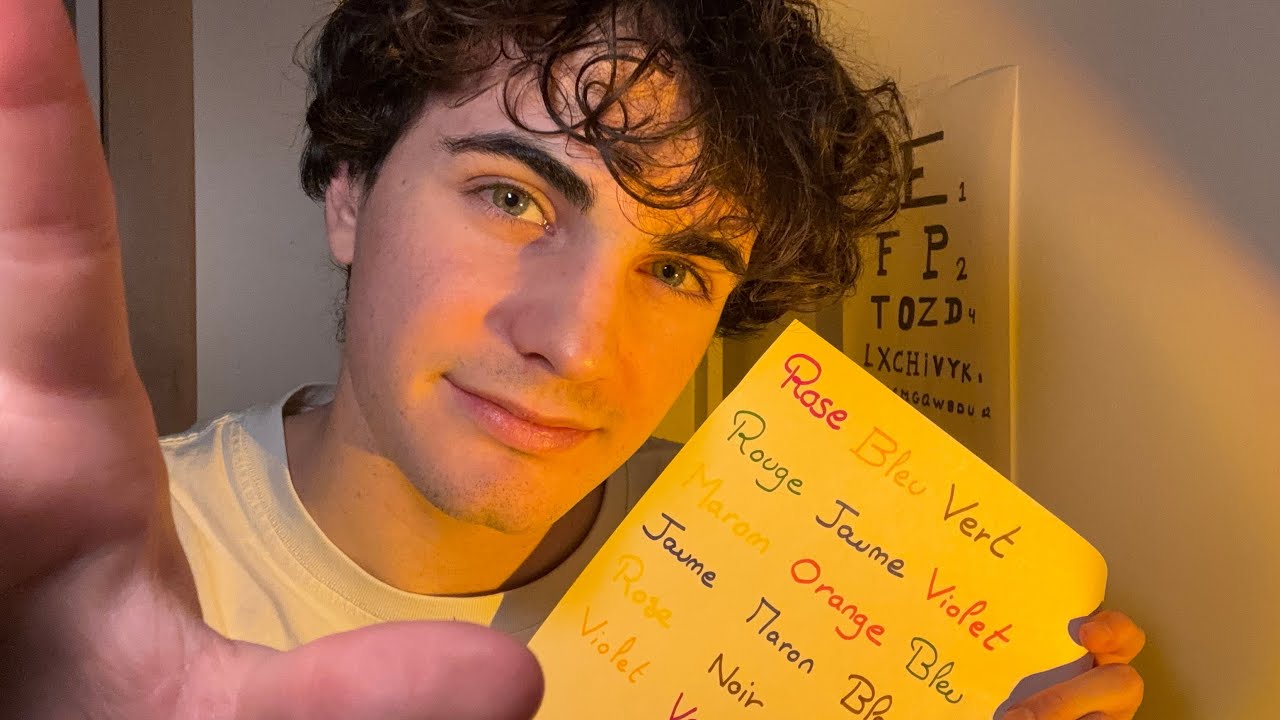 E 1
F P 2
TOZD 4
LXCHiVYK
Rose Bleu Vert
Rouge Jaune Violet
Maron Orange Bleu
Jaune Maron
Rose Noir
Violet